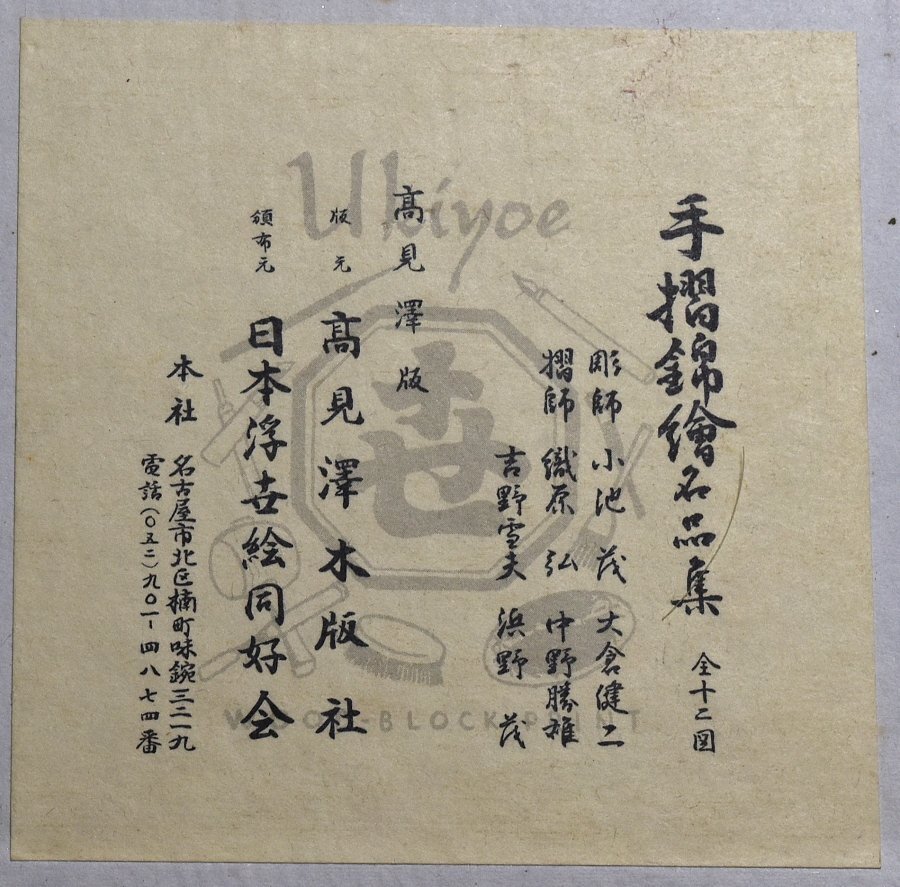 手摺錦繪名品集 全十二図
彫師 小池 茂 大倉健二
摺師 織原 弘 中野勝雄
吉野雪夫 浜野 茂
高見澤版
版元 高見澤木版社
頒布元 日本浮世絵同好会
本社 名古屋市北区楠町味鋺三二一九
電話(〇五二)九〇一-四八七四番
Ukiyoe
WOOD-BLOCK PRINT